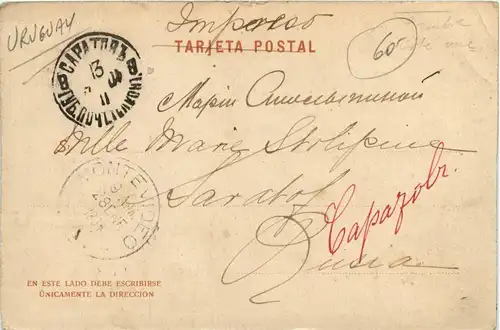 URUGUAY
Impreso
60
TARJETA POSTAL
САРАТОВЪ
13
11
Маріи
Mlle Marie Stolipine
MONTEVIDEO
Saratof
Саратовъ.
Rusia
EN ESTE LADO DEBE ESCRIBIRSE
ÚNICAMENTE LA DIRECCIÓN